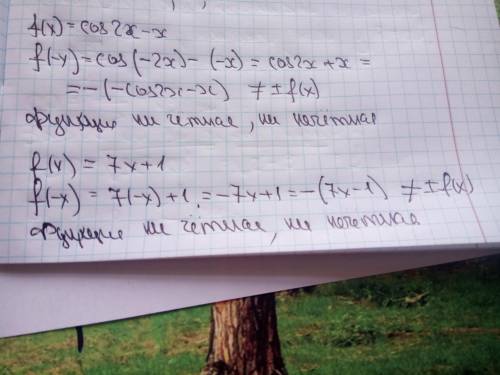 f(x) = cos2x-x
f(-x) = cos(-2x)-(-x) = cos2x+x =
= -(-cos2x-x) ≠ ±f(x)
Функция ни чётная, ни нечётная
f(x) = 7x+1
f(-x) = 7(-x)+1 = -7x+1 = -(7x-1) ≠ ±f(x)
Функция ни чётная, ни нечетная